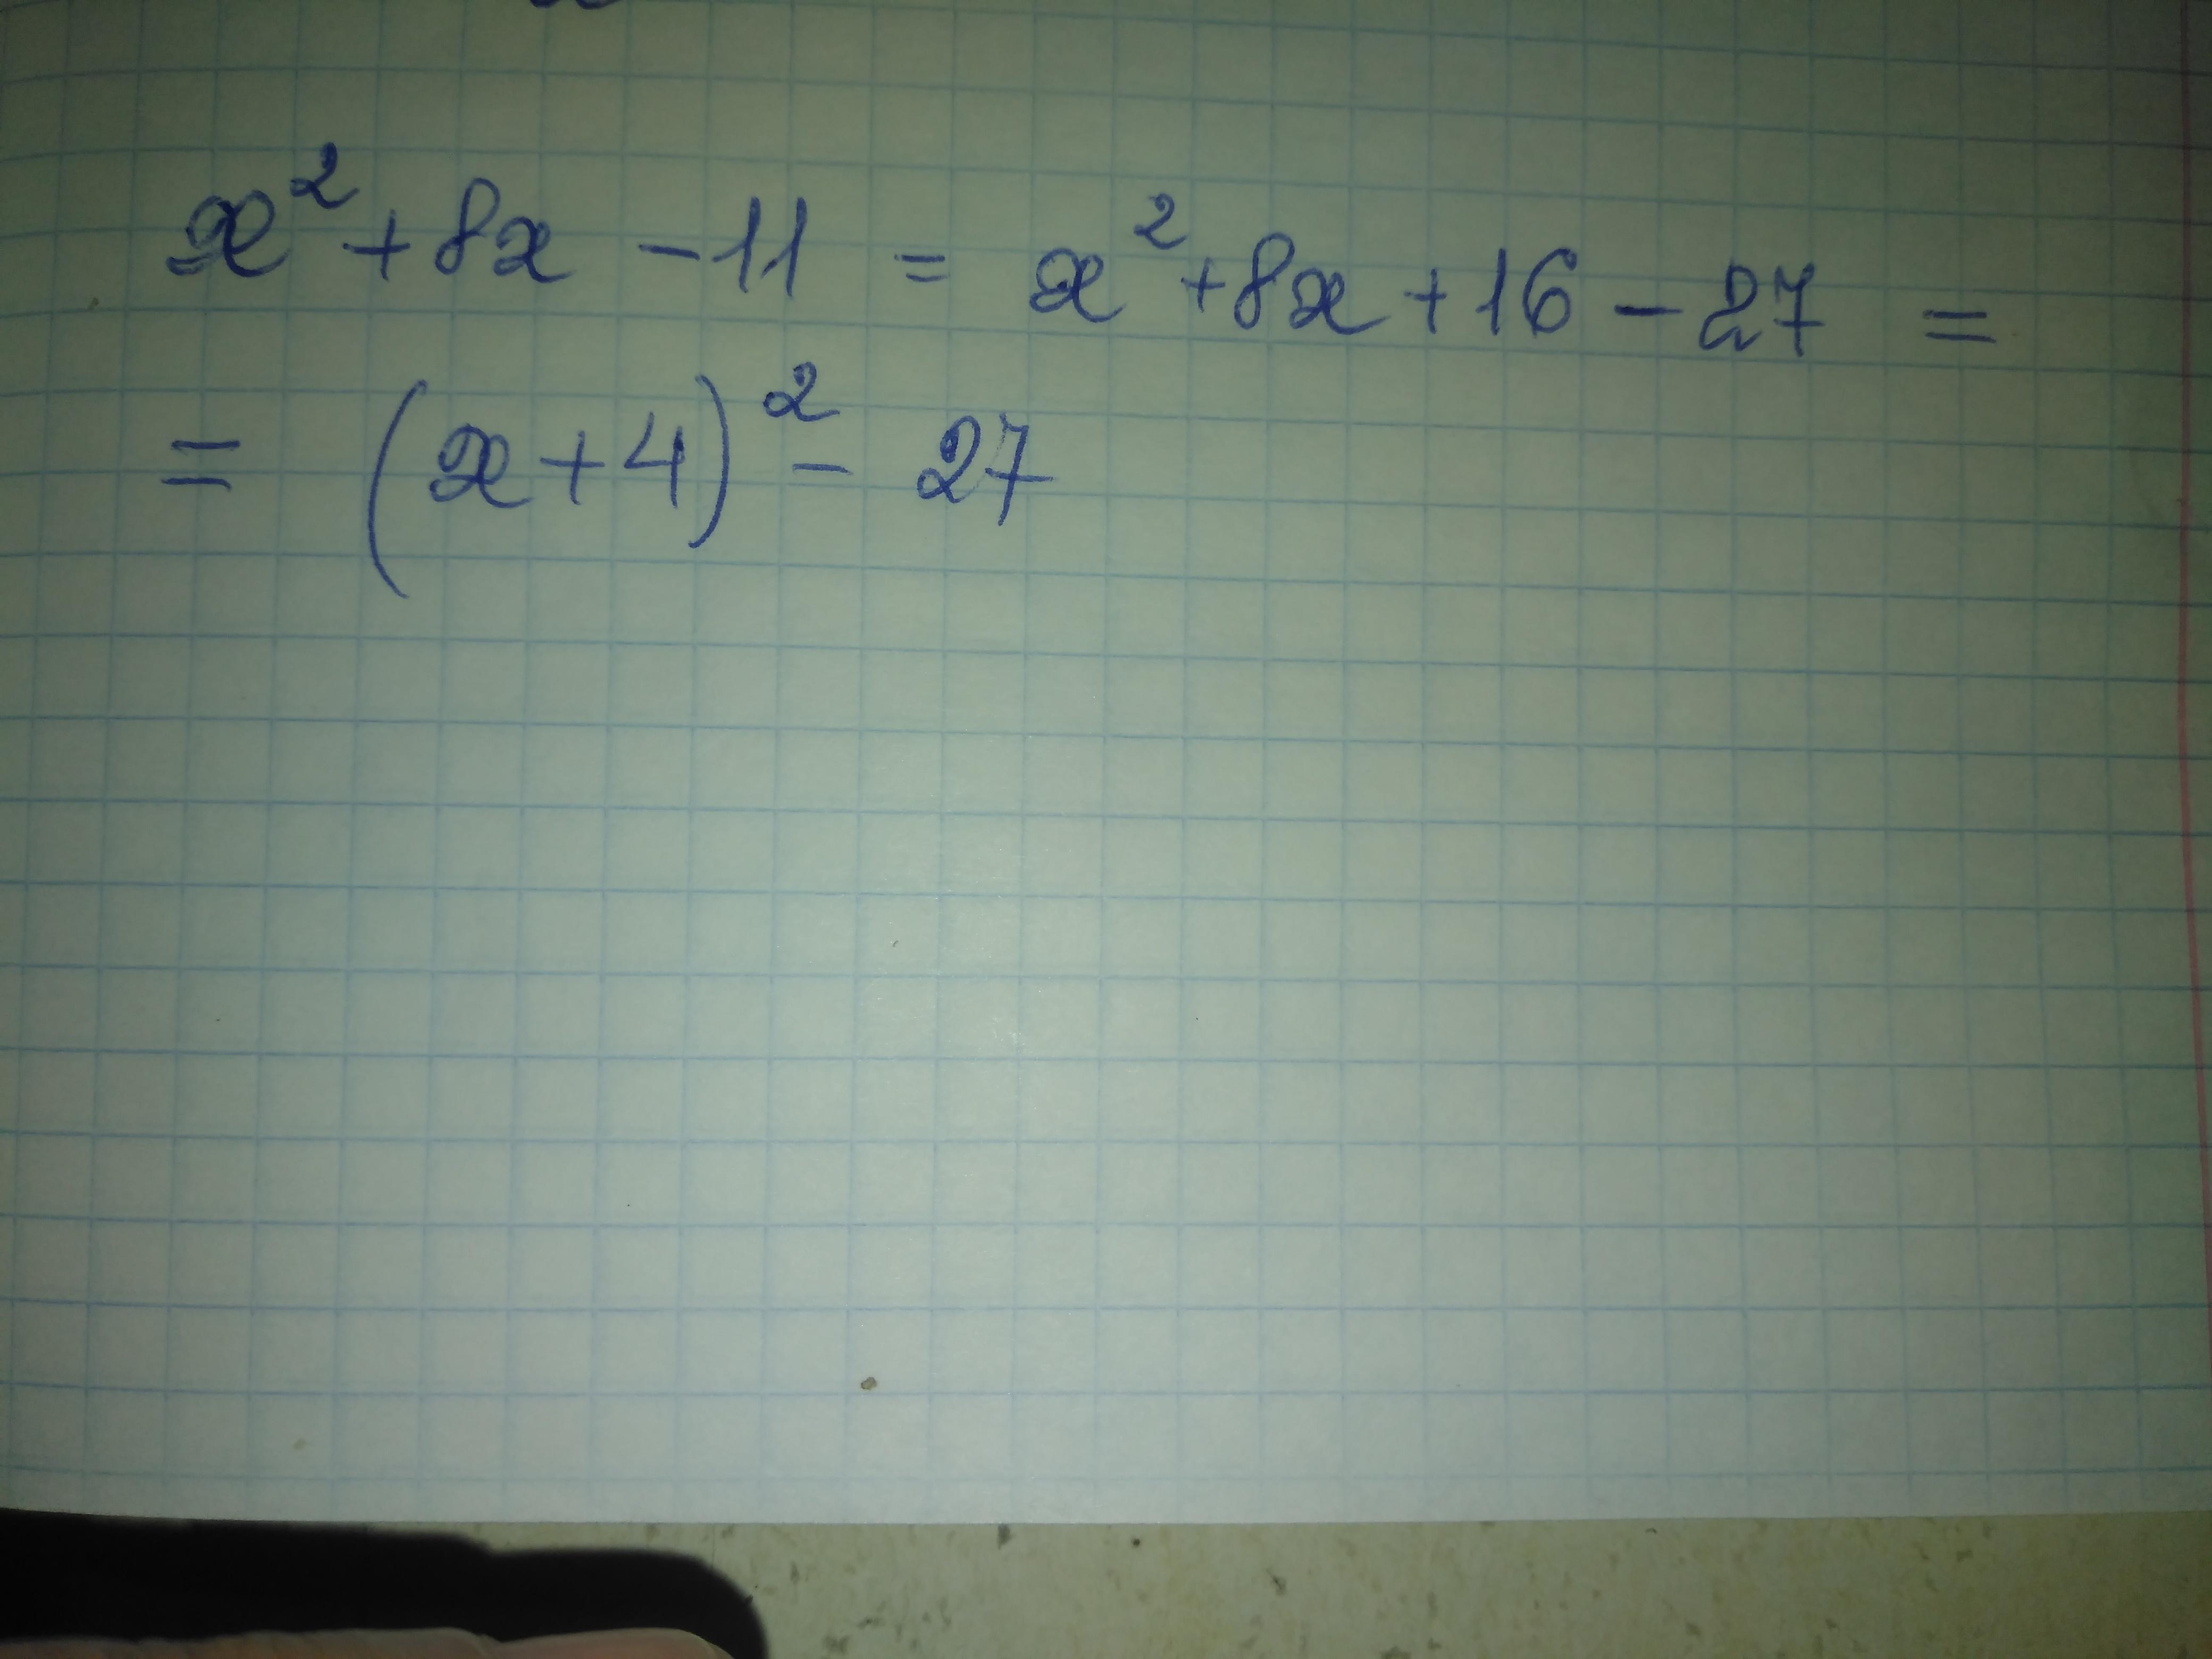 x² + 8x - 11 = x² + 8x + 16 - 27 =
= (x + 4)² - 27